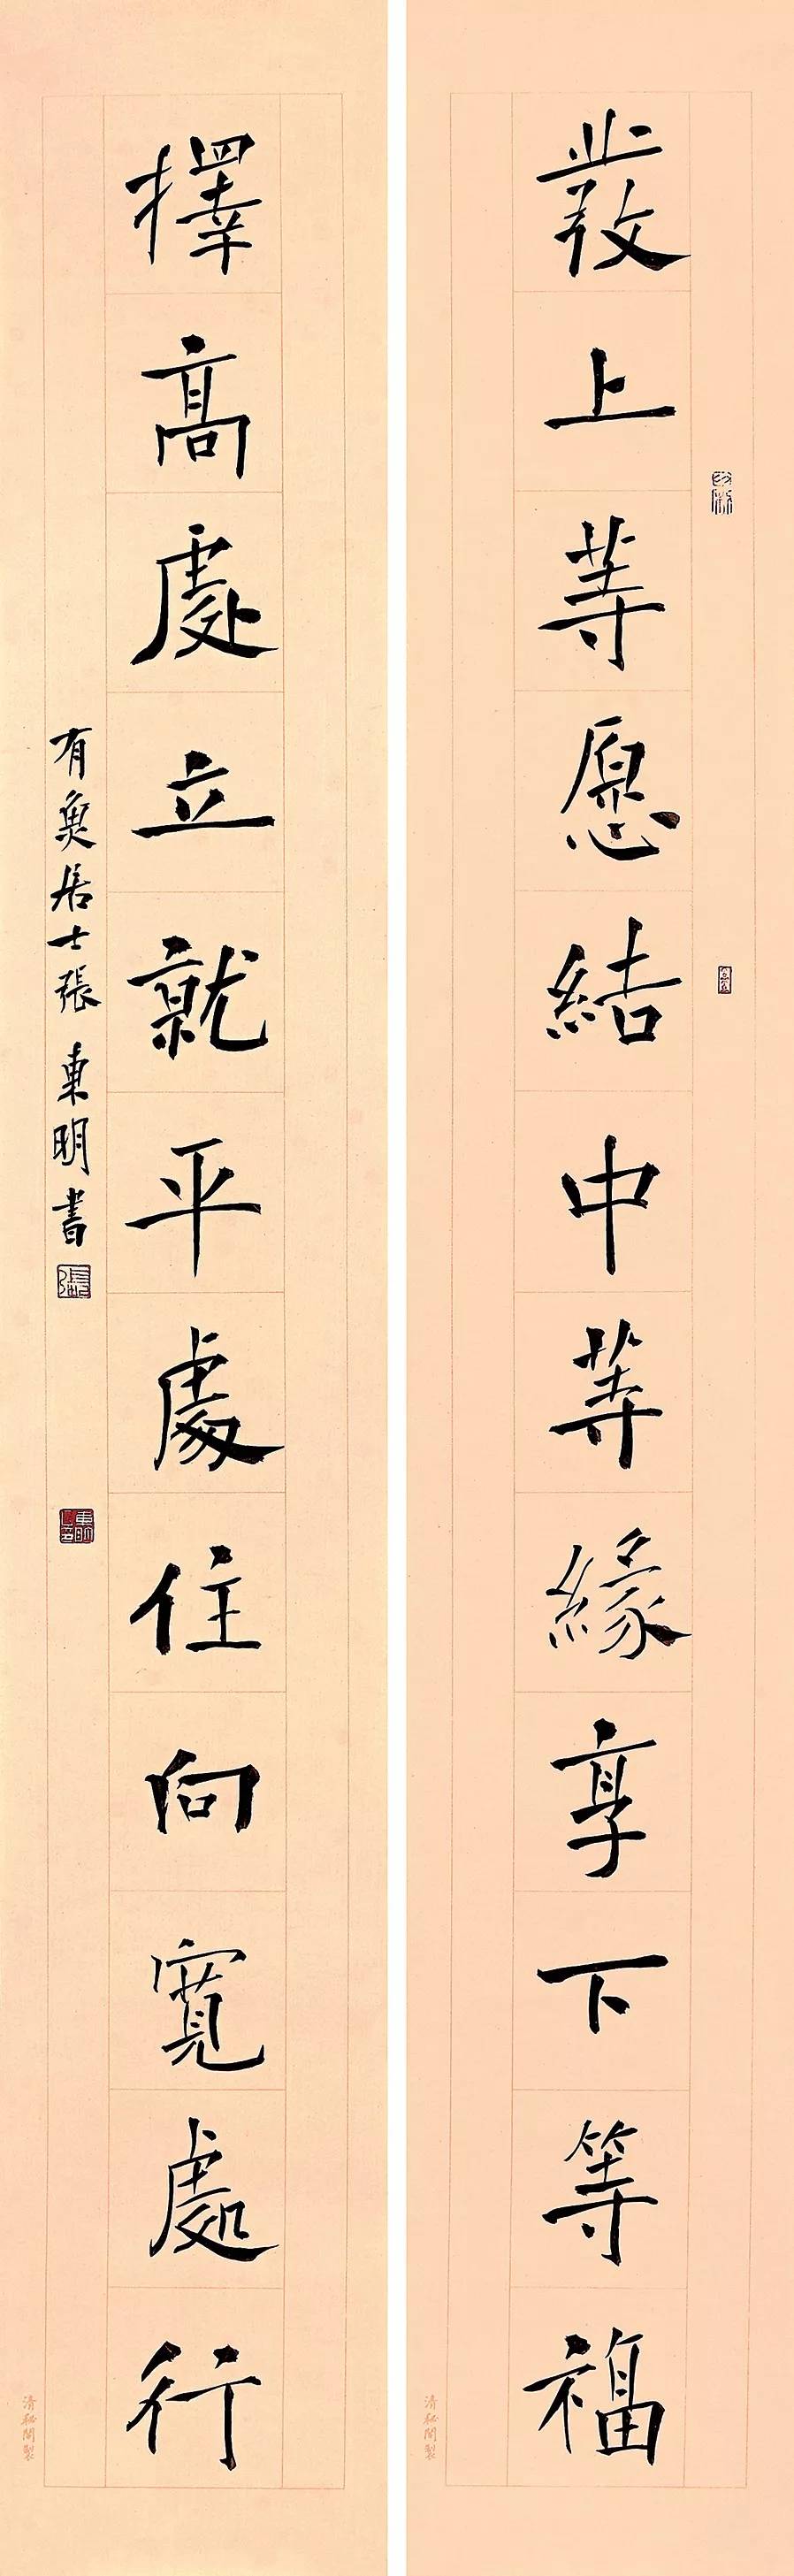 發上等愿結中等緣享下等福
擇高處立就平處住向寬處行
有奠居士張東明書
清秘閣製
清秘閣製